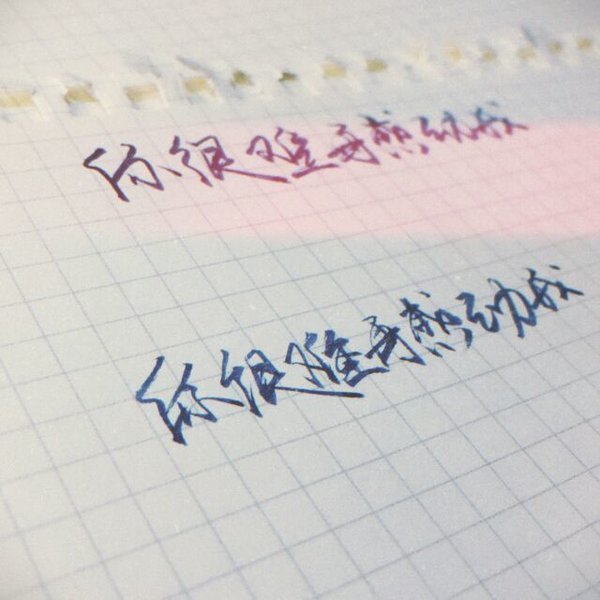 你很难再感动我
你很难再感动我